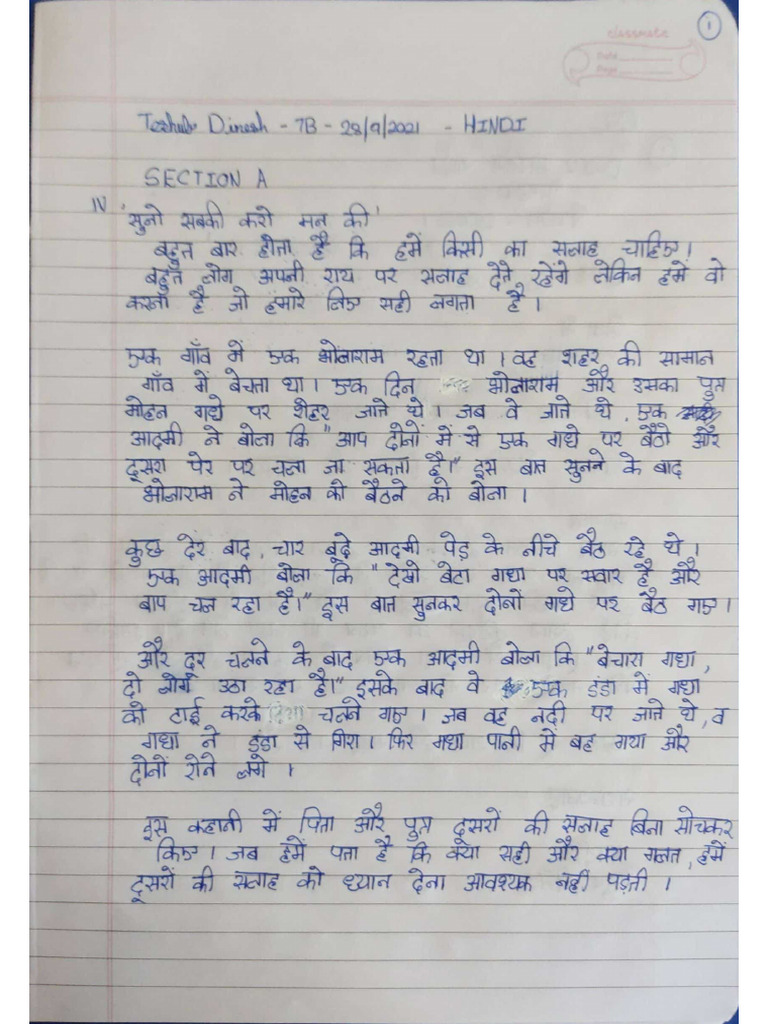 1
classmate
Date
Page
Dinesh - 7B - 28/9/2021 - HINDI
SECTION A
IV 'सुनो सबकी करो मन की'
बहुत बार होता है कि हमें किसी का सलाह चाहिए।
बहुत लोग अपनी राय पर सलाह देते रहेंगे लेकिन हमें वो
करना है जो हमारे लिए सही लगता है।
एक गाँव में एक भोलाराम रहता था। वह शहर की सामान
गाँव में बेचता था। एक दिन भोलाराम और उसका पुत्र
मोहन गधे पर शेहर जाते थे। जब वे जाते थे, एक
आदमी ने बोला कि "आप दोनों में से एक गधे पर बैठो और
दूसरा पेर पर चला जा सकता है।" इस बात सुनने के बाद
भोलाराम ने मोहन को बैठने को बोला।
कुछ देर बाद, चार बूढ़े आदमी पेड़ के नीचे बैठ रहे थे।
एक आदमी बोला कि "देखो बेटा गधा पर सवार है और
बाप चल रहा है।" इस बात सुनकर दोनों गधे पर बैठ गए।
और दूर चलने के बाद एक आदमी बोला कि "बेचारा गधा,
दो लोग उठा रहा है।" इसके बाद वे एक डंडा में गधा
को टाई करके चलने गए। जब वह नदी पर जाते थे, व
गधा ने डंडा से गिरा। फिर गधा पानी में बह गया और
दोनों रोने लगे।
इस कहानी में पिता और पुत्र दूसरों की सलाह बिना सोचकर
किए। जब हमें पता है कि क्या सही और क्या गलत, हमें
दूसरों की सलाह को ध्यान देना आवश्यक नहीं पड़ती।